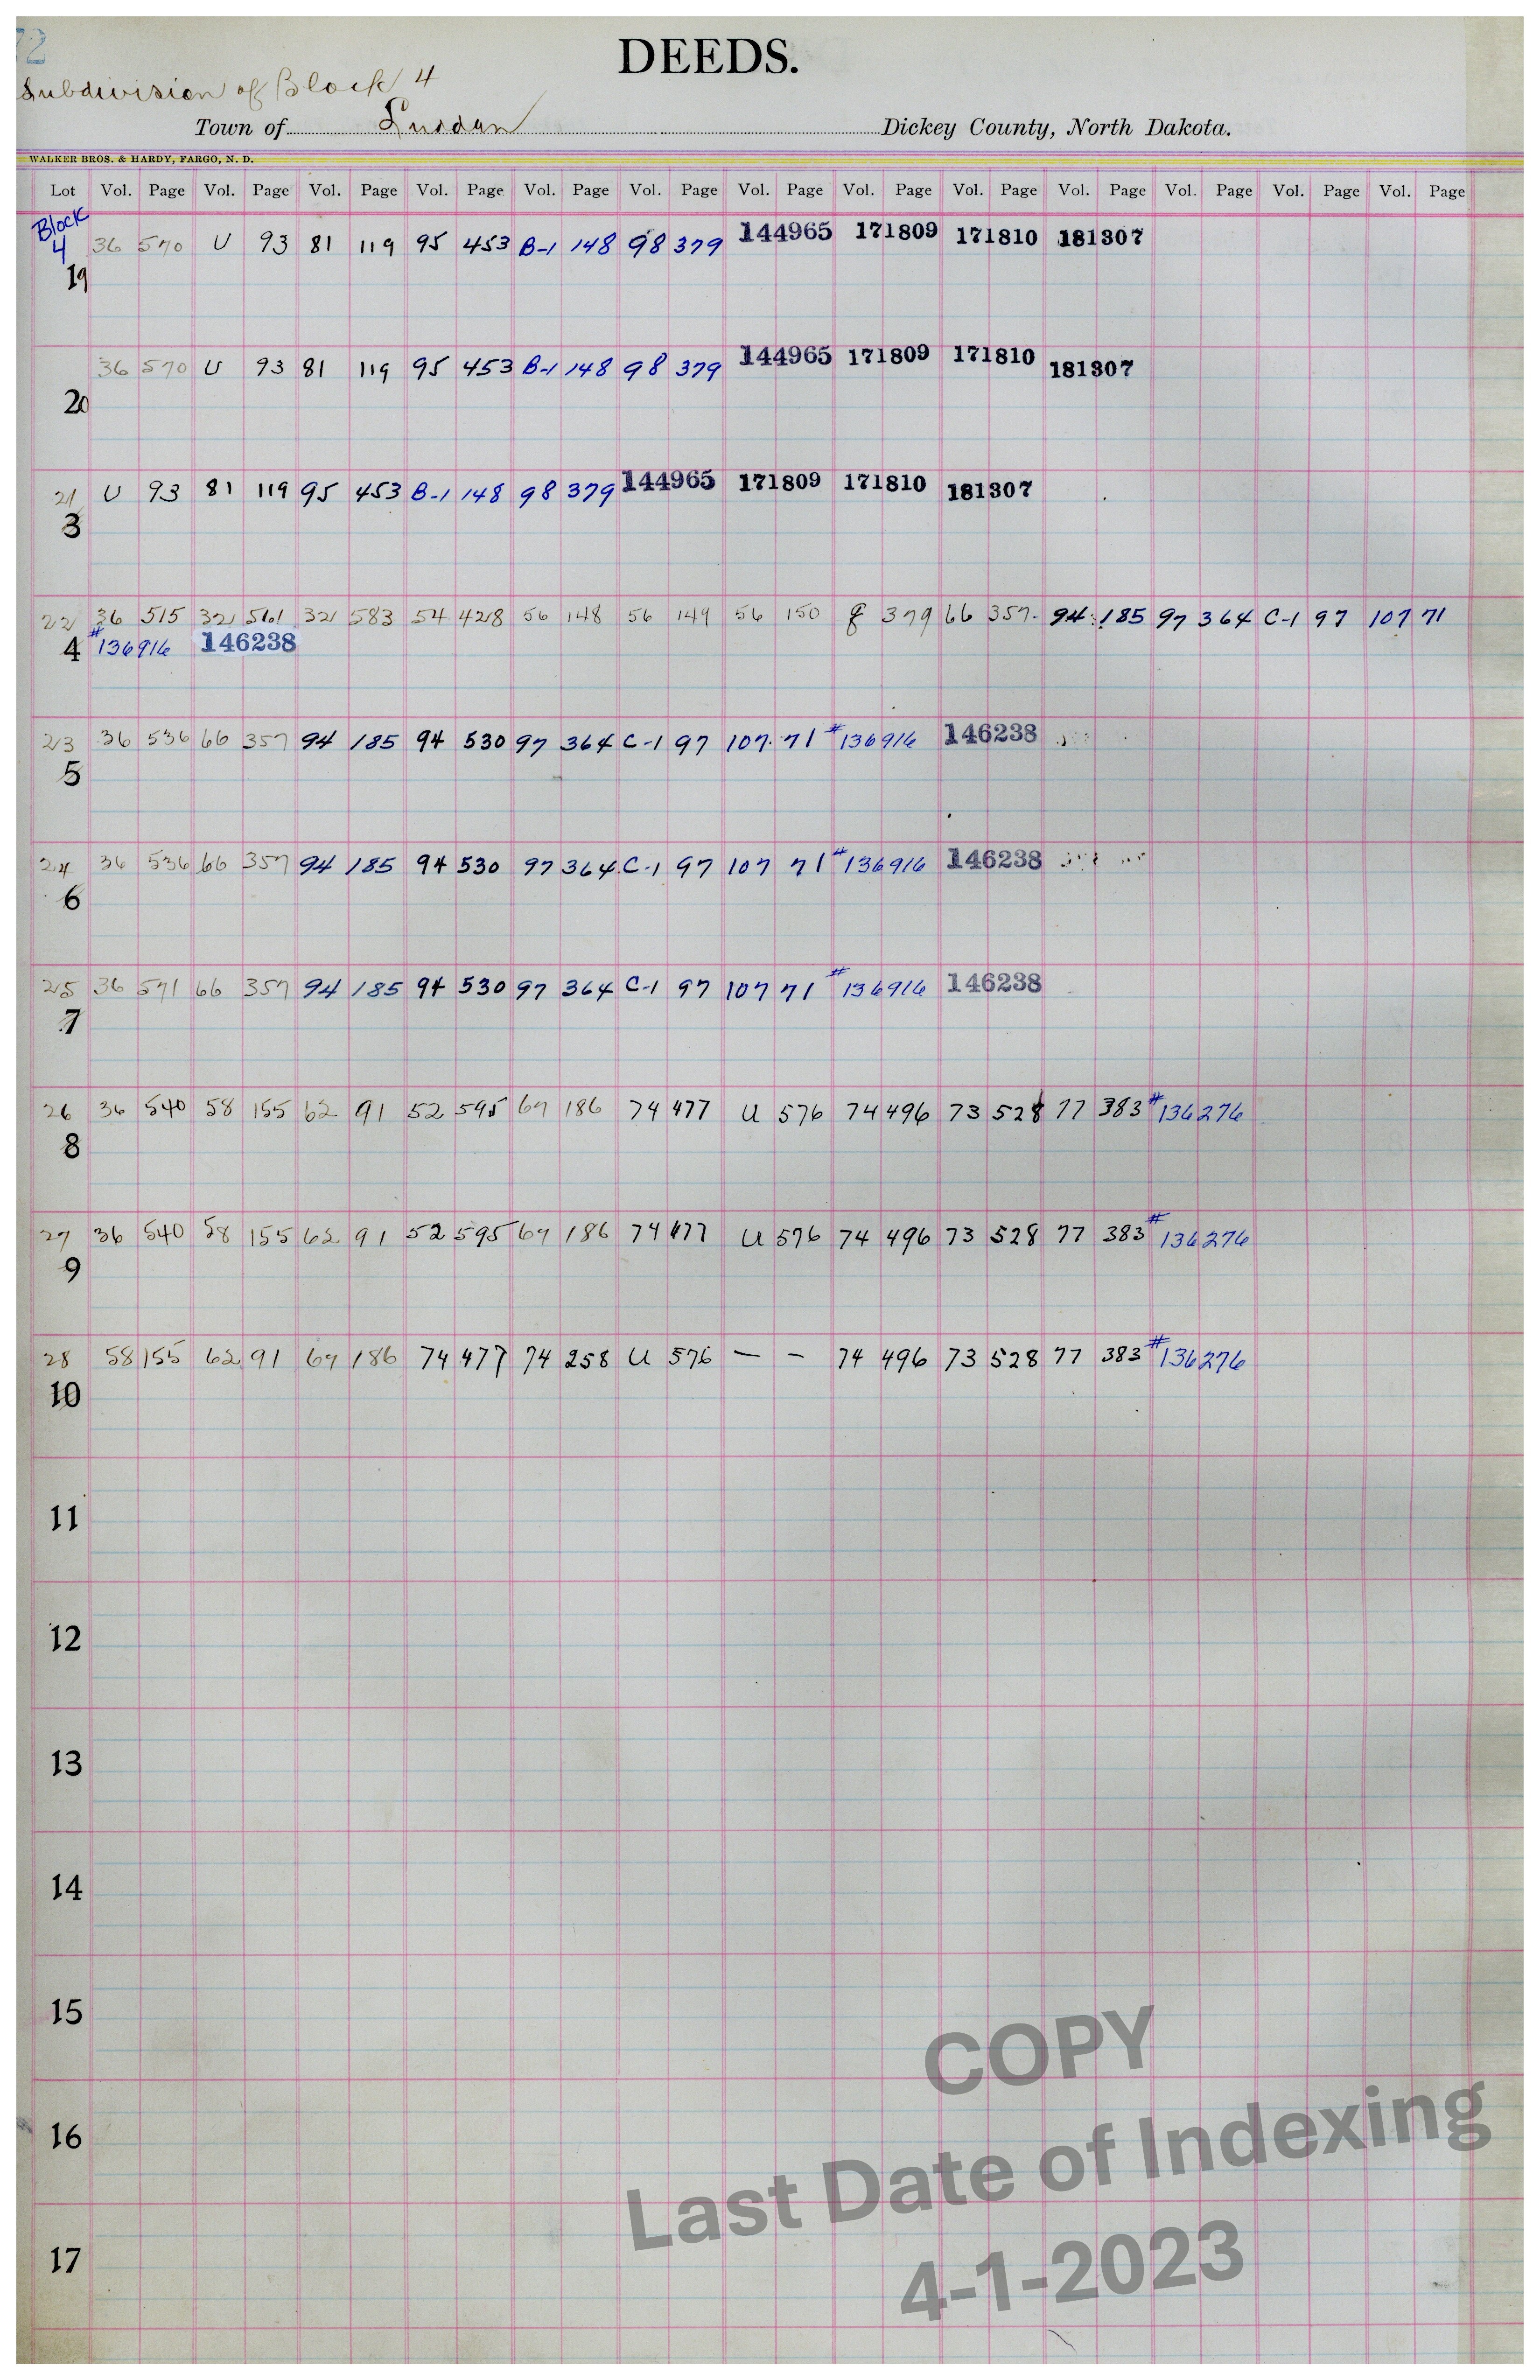 72
DEEDS.
Subdivision of Block 4
Town of Ludden Dickey County, North Dakota.
WALKER BROS. & HARDY, FARGO, N. D.
Lot Vol. Page Vol. Page Vol. Page Vol. Page Vol. Page Vol. Page Vol. Page Vol. Page Vol. Page Vol. Page Vol. Page Vol. Page Vol. Page
Block
4 36 570 U 93 81 119 95 453 B-1 148 98 379 144965 171809 171810 181307
19
36 570 U 93 81 119 95 453 B-1 148 98 379 144965 171809 171810 181307
20
21 U 93 81 119 95 453 B-1 148 98 379 144965 171809 171810 181307
3
22 36 515 32 561 32 583 54 428 56 148 56 149 56 150 379 66 357 94 185 97 364 C-1 97 107 71
4 #136916 146238
23 36 536 66 357 94 185 94 530 97 364 C-1 97 107 71 #136916 146238
5
24 36 536 66 357 94 185 94 530 97 364 C-1 97 107 71 #136916 146238
6
25 36 571 66 357 94 185 94 530 97 364 C-1 97 107 71 #136916 146238
7
26 36 540 58 155 62 91 52 595 69 186 74 477 U 576 74 496 73 528 77 383 #136276
8
27 36 540 58 155 62 91 52 595 69 186 74 477 U 576 74 496 73 528 77 383 #136276
9
28 58 155 62 91 69 186 74 477 74 258 U 576 — — 74 496 73 528 77 383 #136276
10
11
12
13
14
15
16
17
COPY
Last Date of Indexing
4-1-2023